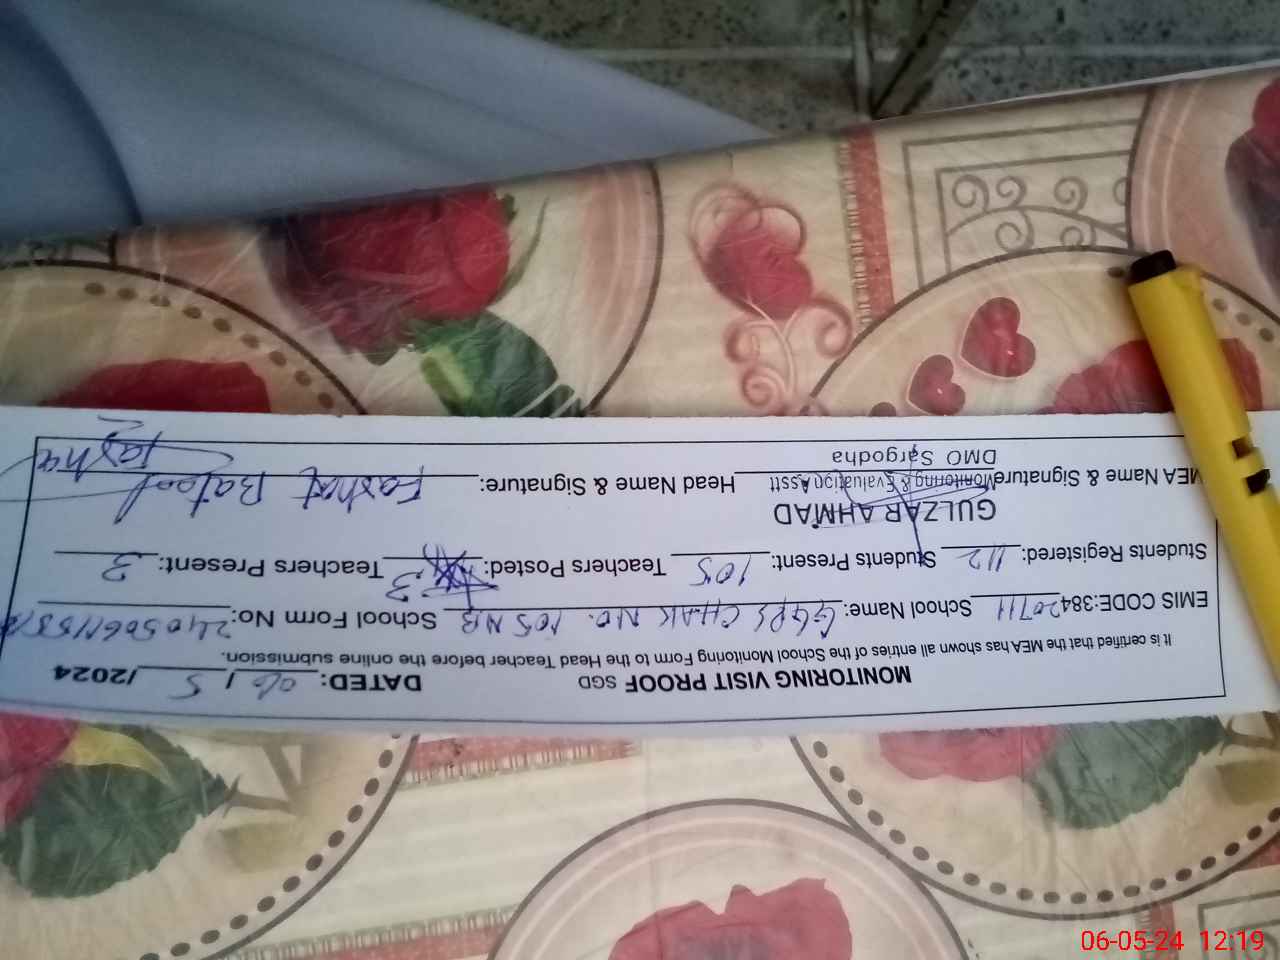 MONITORING VISIT PROOF SGD DATED: 06/5/2024
It is certified that the MEA has shown all entries of the School Monitoring Form to the Head Teacher before the online submission.
EMIS CODE:38420711 School Name: GGPS CHAK NO. 105 NB School Form No:
Students Registered: 112 Students Present: 105 Teachers Posted: 3 Teachers Present: 3
GULZAR AHMAD
MEA Name & Signature Monitoring & Evaluation Asstt Head Name & Signature: Batool
DMO Sargodha
06-05-24 12:19